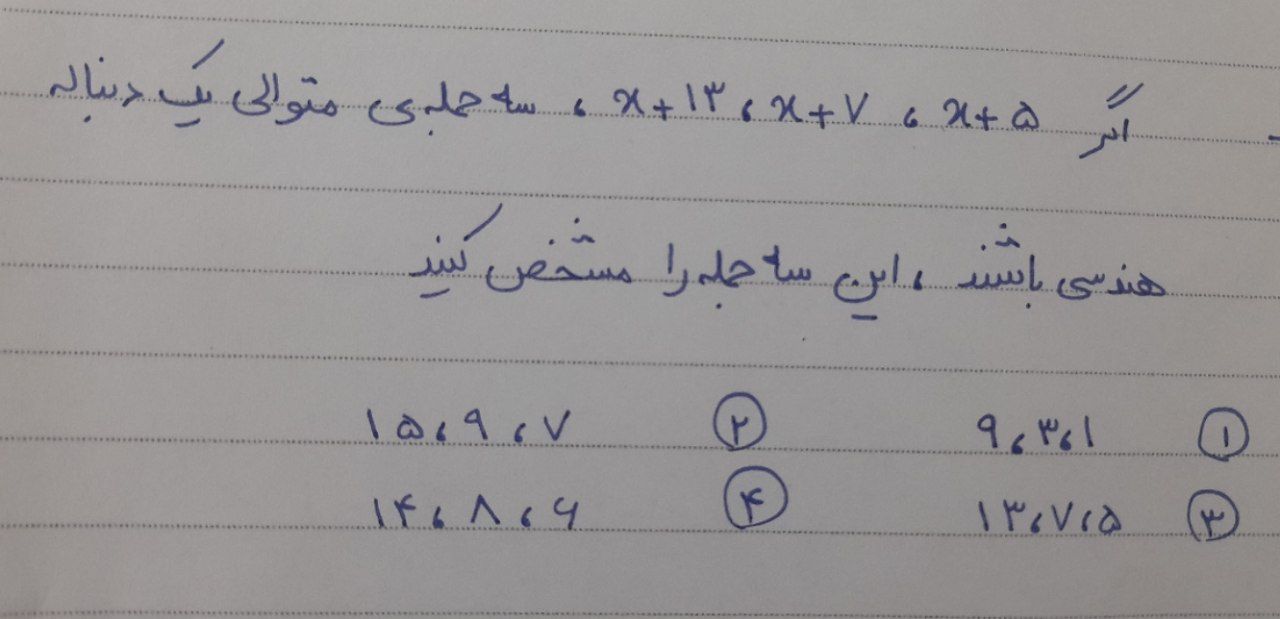 اگر x+۵ ، x+۷ ، x+۱۳ ، سه جمله‌ی متوالی یک دنباله
هندسی باشند ، این سه جمله را مشخص کنید
① ۱ ، ۳ ، ۹ ② ۷ ، ۹ ، ۱۵
③ ۵ ، ۷ ، ۱۳ ④ ۶ ، ۸ ، ۱۴